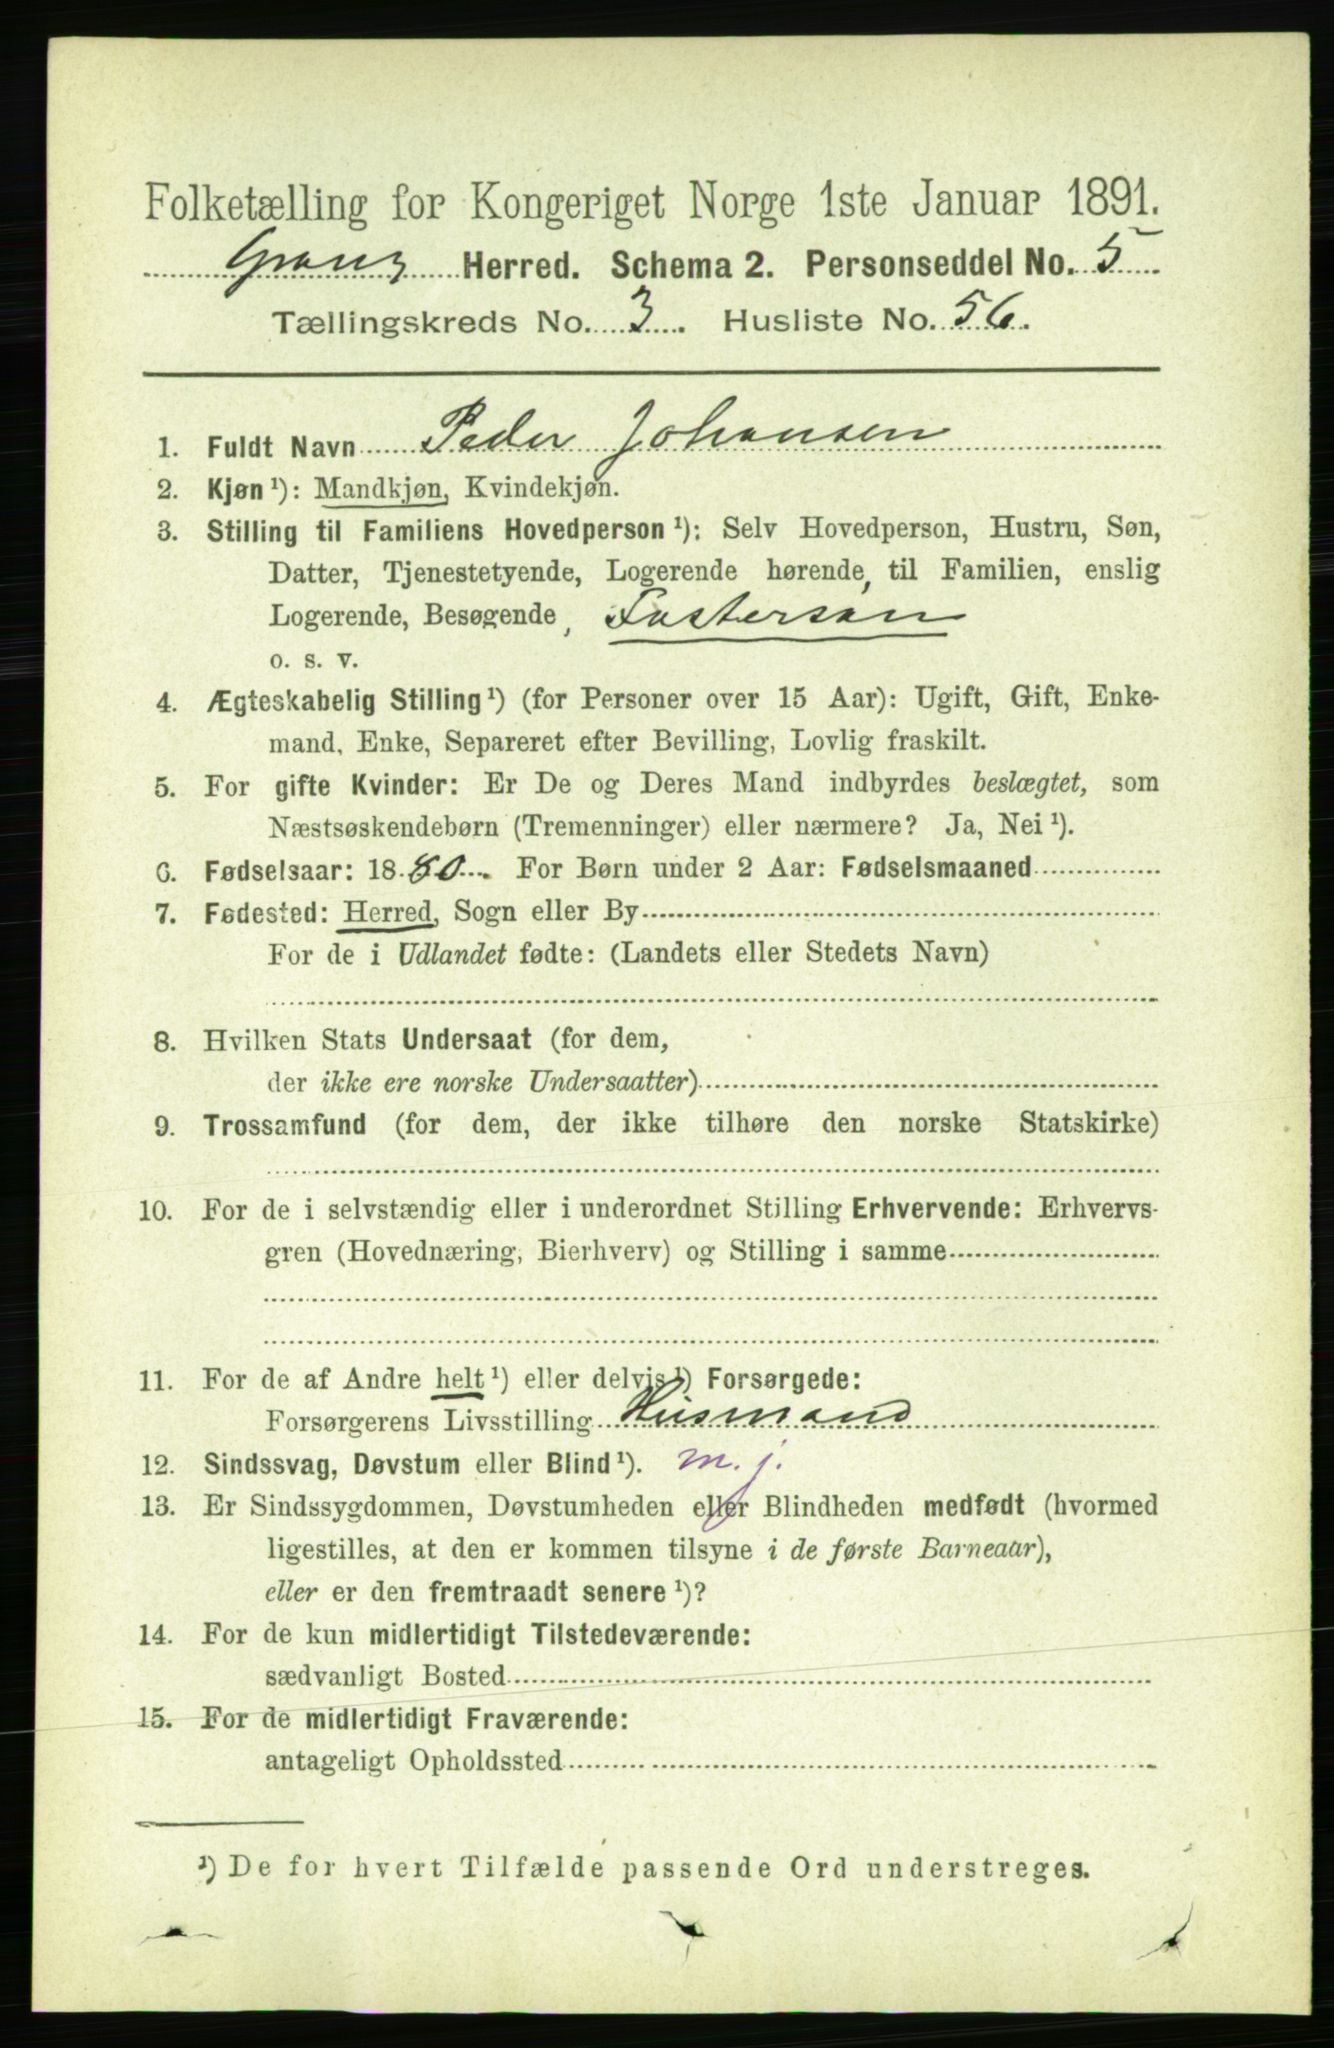 Folketælling for Kongeriget Norge 1ste Januar 1891.
Grans Herred. Schema 2. Personseddel No. 5
Tællingskreds No. 3. Husliste No. 56.
1. Fuldt Navn Peder Johansen
2. Kjøn ¹): Mandkjøn, Kvindekjøn.
3. Stilling til Familiens Hovedperson ¹): Selv Hovedperson, Hustru, Søn,
Datter, Tjenestetyende, Logerende hørende til Familien, enslig
Logerende, Besøgende, Fostersøn
o. s. v.
4. Ægteskabelig Stilling ¹) (for Personer over 15 Aar): Ugift, Gift, Enke-
mand, Enke, Separeret efter Bevilling, Lovlig fraskilt.
5. For gifte Kvinder: Er De og Deres Mand indbyrdes beslægtet, som
Næstsøskendebørn (Tremenninger) eller nærmere? Ja, Nei ¹).
6. Fødselsaar: 1880. For Børn under 2 Aar: Fødselsmaaned
7. Fødested: Herred, Sogn eller By
For de i Udlandet fødte: (Landets eller Stedets Navn)
8. Hvilken Stats Undersaat (for dem,
der ikke ere norske Undersaatter)
9. Trossamfund (for dem, der ikke tilhøre den norske Statskirke)
10. For de i selvstændig eller i underordnet Stilling Erhvervende: Erhvervs-
gren (Hovednæring, Bierhverv) og Stilling i samme
11. For de af Andre helt ¹) eller delvis ¹) Forsørgede:
Forsørgerens Livsstilling Husmand
12. Sindssvag, Døvstum eller Blind ¹). m. j.
13. Er Sindssygdommen, Døvstumheden eller Blindheden medfødt (hvormed
ligestilles, at den er kommen tilsyne i de første Barneaar),
eller er den fremtraadt senere ¹)?
14. For de kun midlertidigt Tilstedeværende:
sædvanligt Bosted
15. For de midlertidigt Fraværende:
antageligt Opholdssted
¹) De for hvert Tilfælde passende Ord understreges.